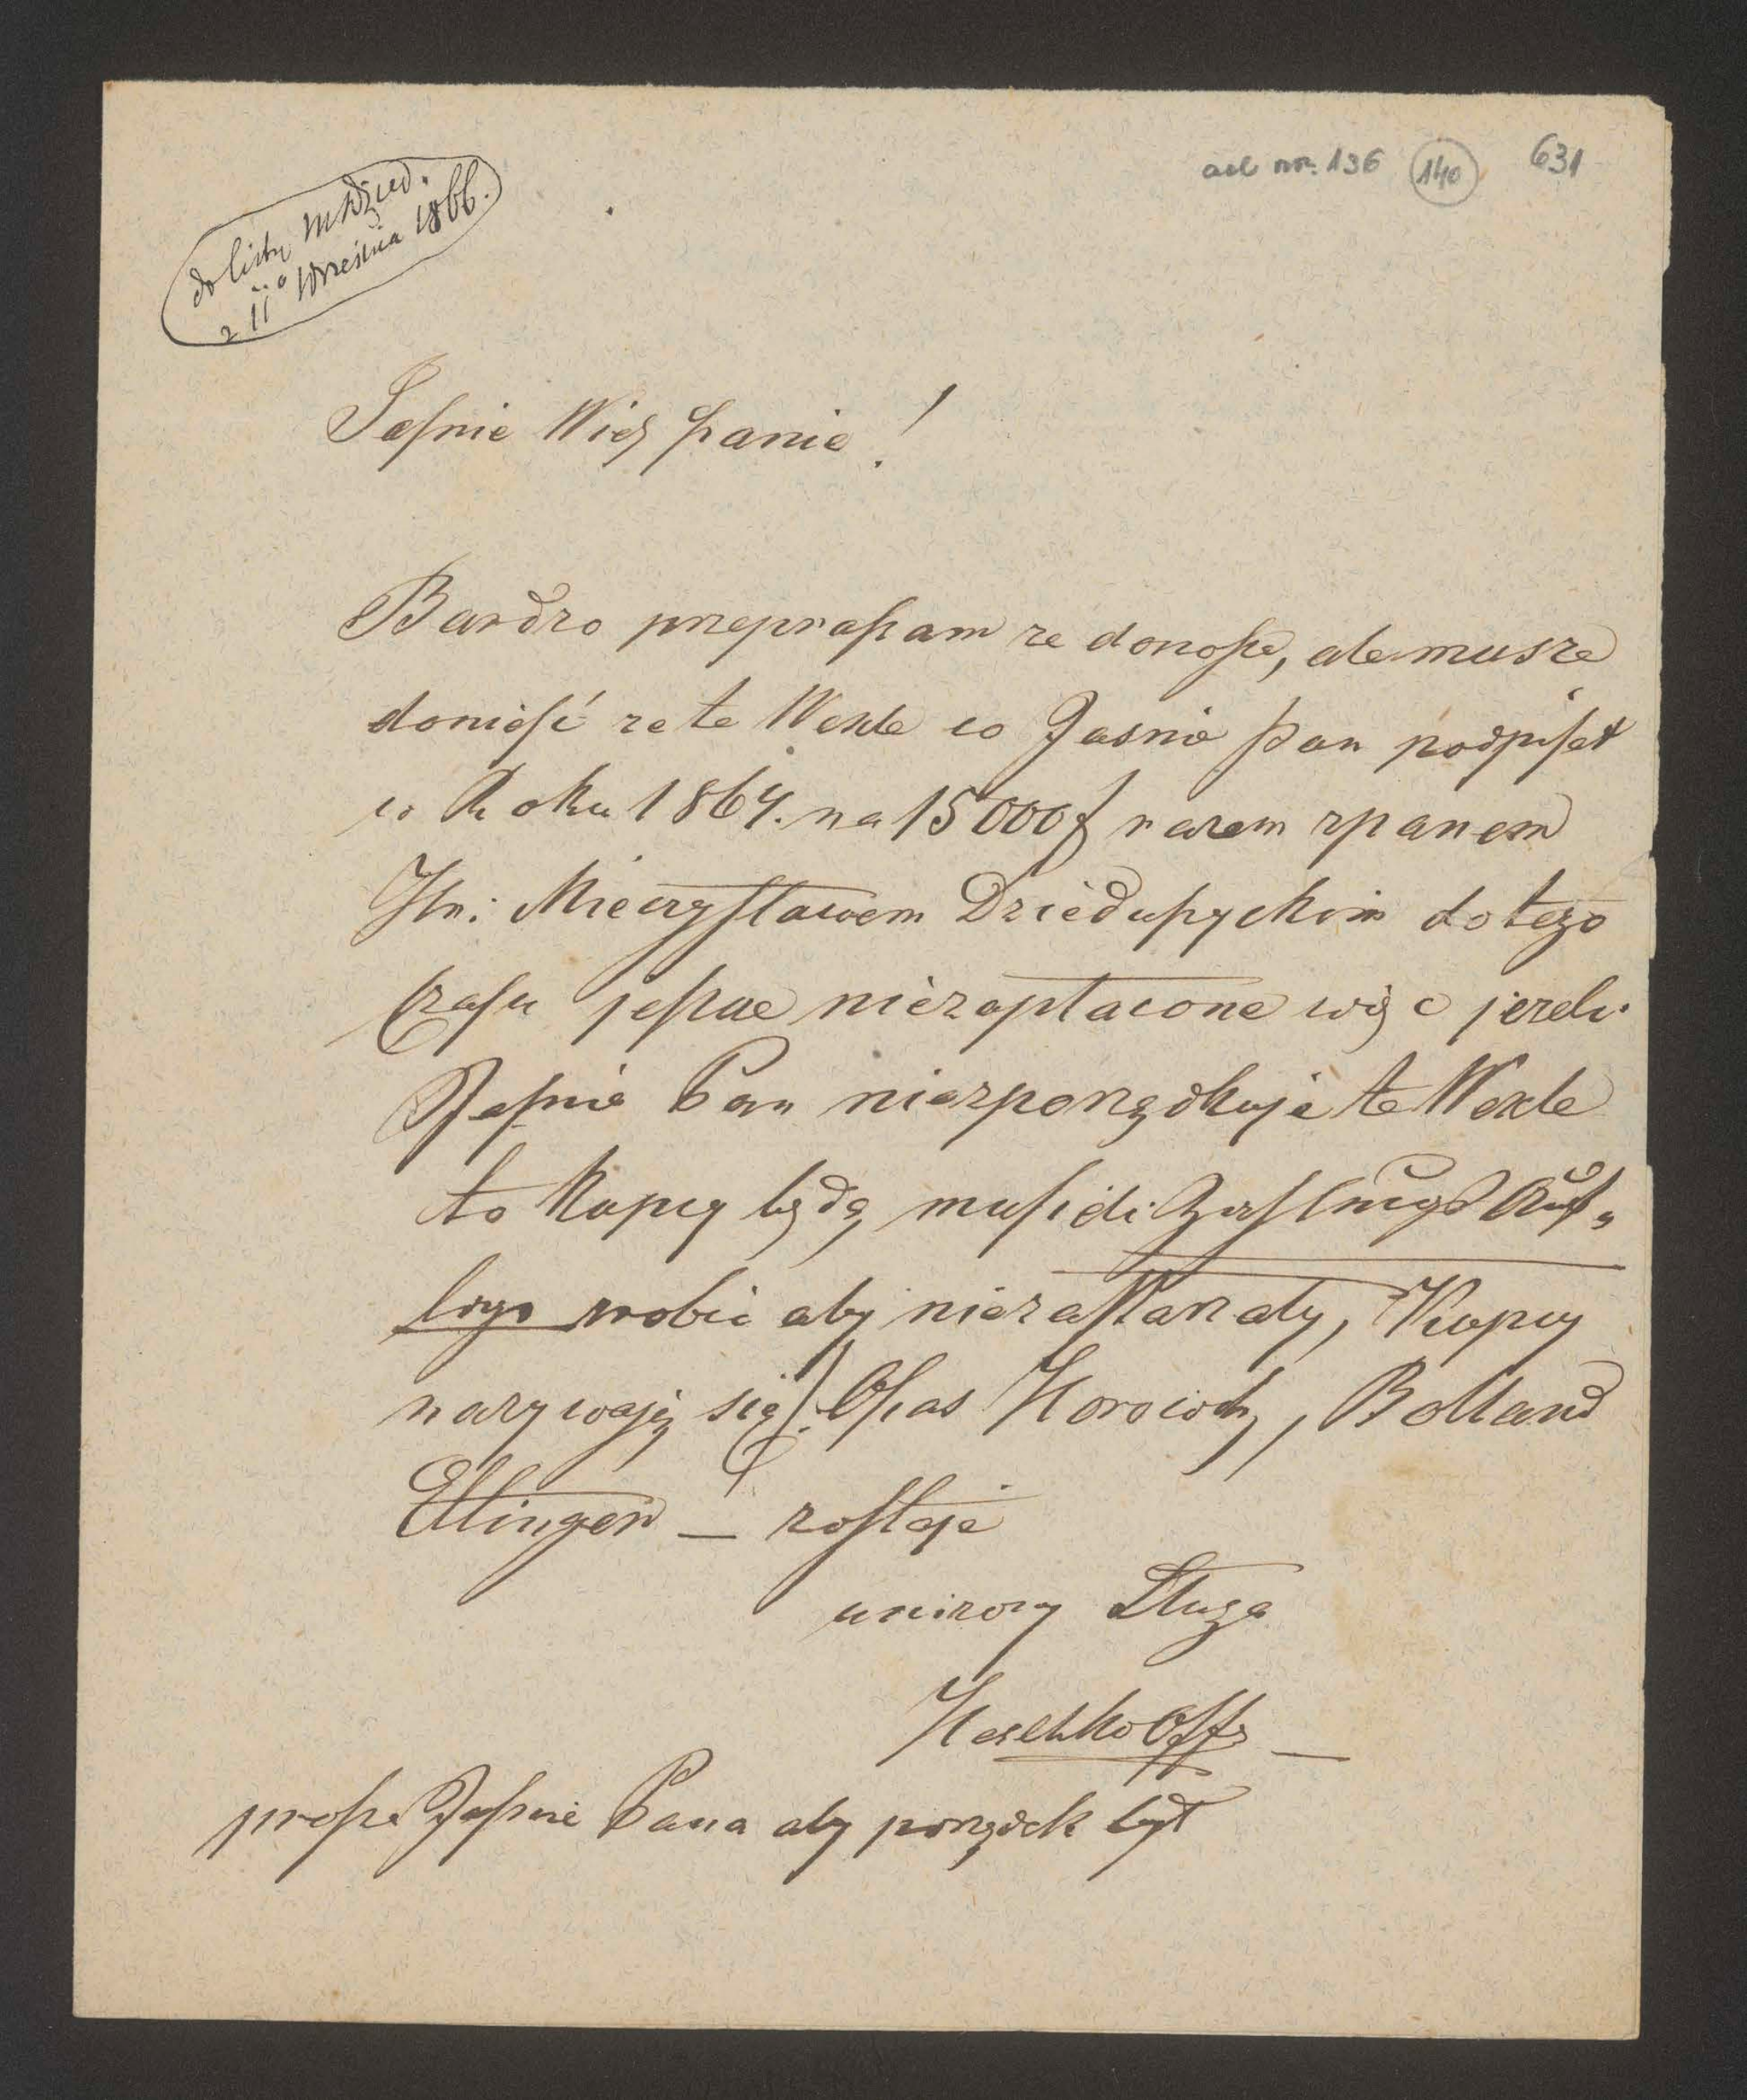 ad nr. 136 140 631
do listu MDzied.
z 11º Września 1866.
Jaśnie Wielż panie!
Bardzo preprapam ze donosze, ale musze
donieść ze te Wexle co Jasnie pan podpisał
w Roku 1864. na 15000 f razem zpanem
Hr: Mieczysławem Dzieduszyckim do tego
czasu jeszcze niezaplacone więc jezeli
Jaśnie Pan niezporządkuje te Wexle
to Kupcy będą musieli
robić aby niezastarzaly, Kupcy
nazywają się: Ozias Horowitz, Bolland
Ettinger — zostaje
unizony Sługa
prosze Jaśnie Pana aby porządek był